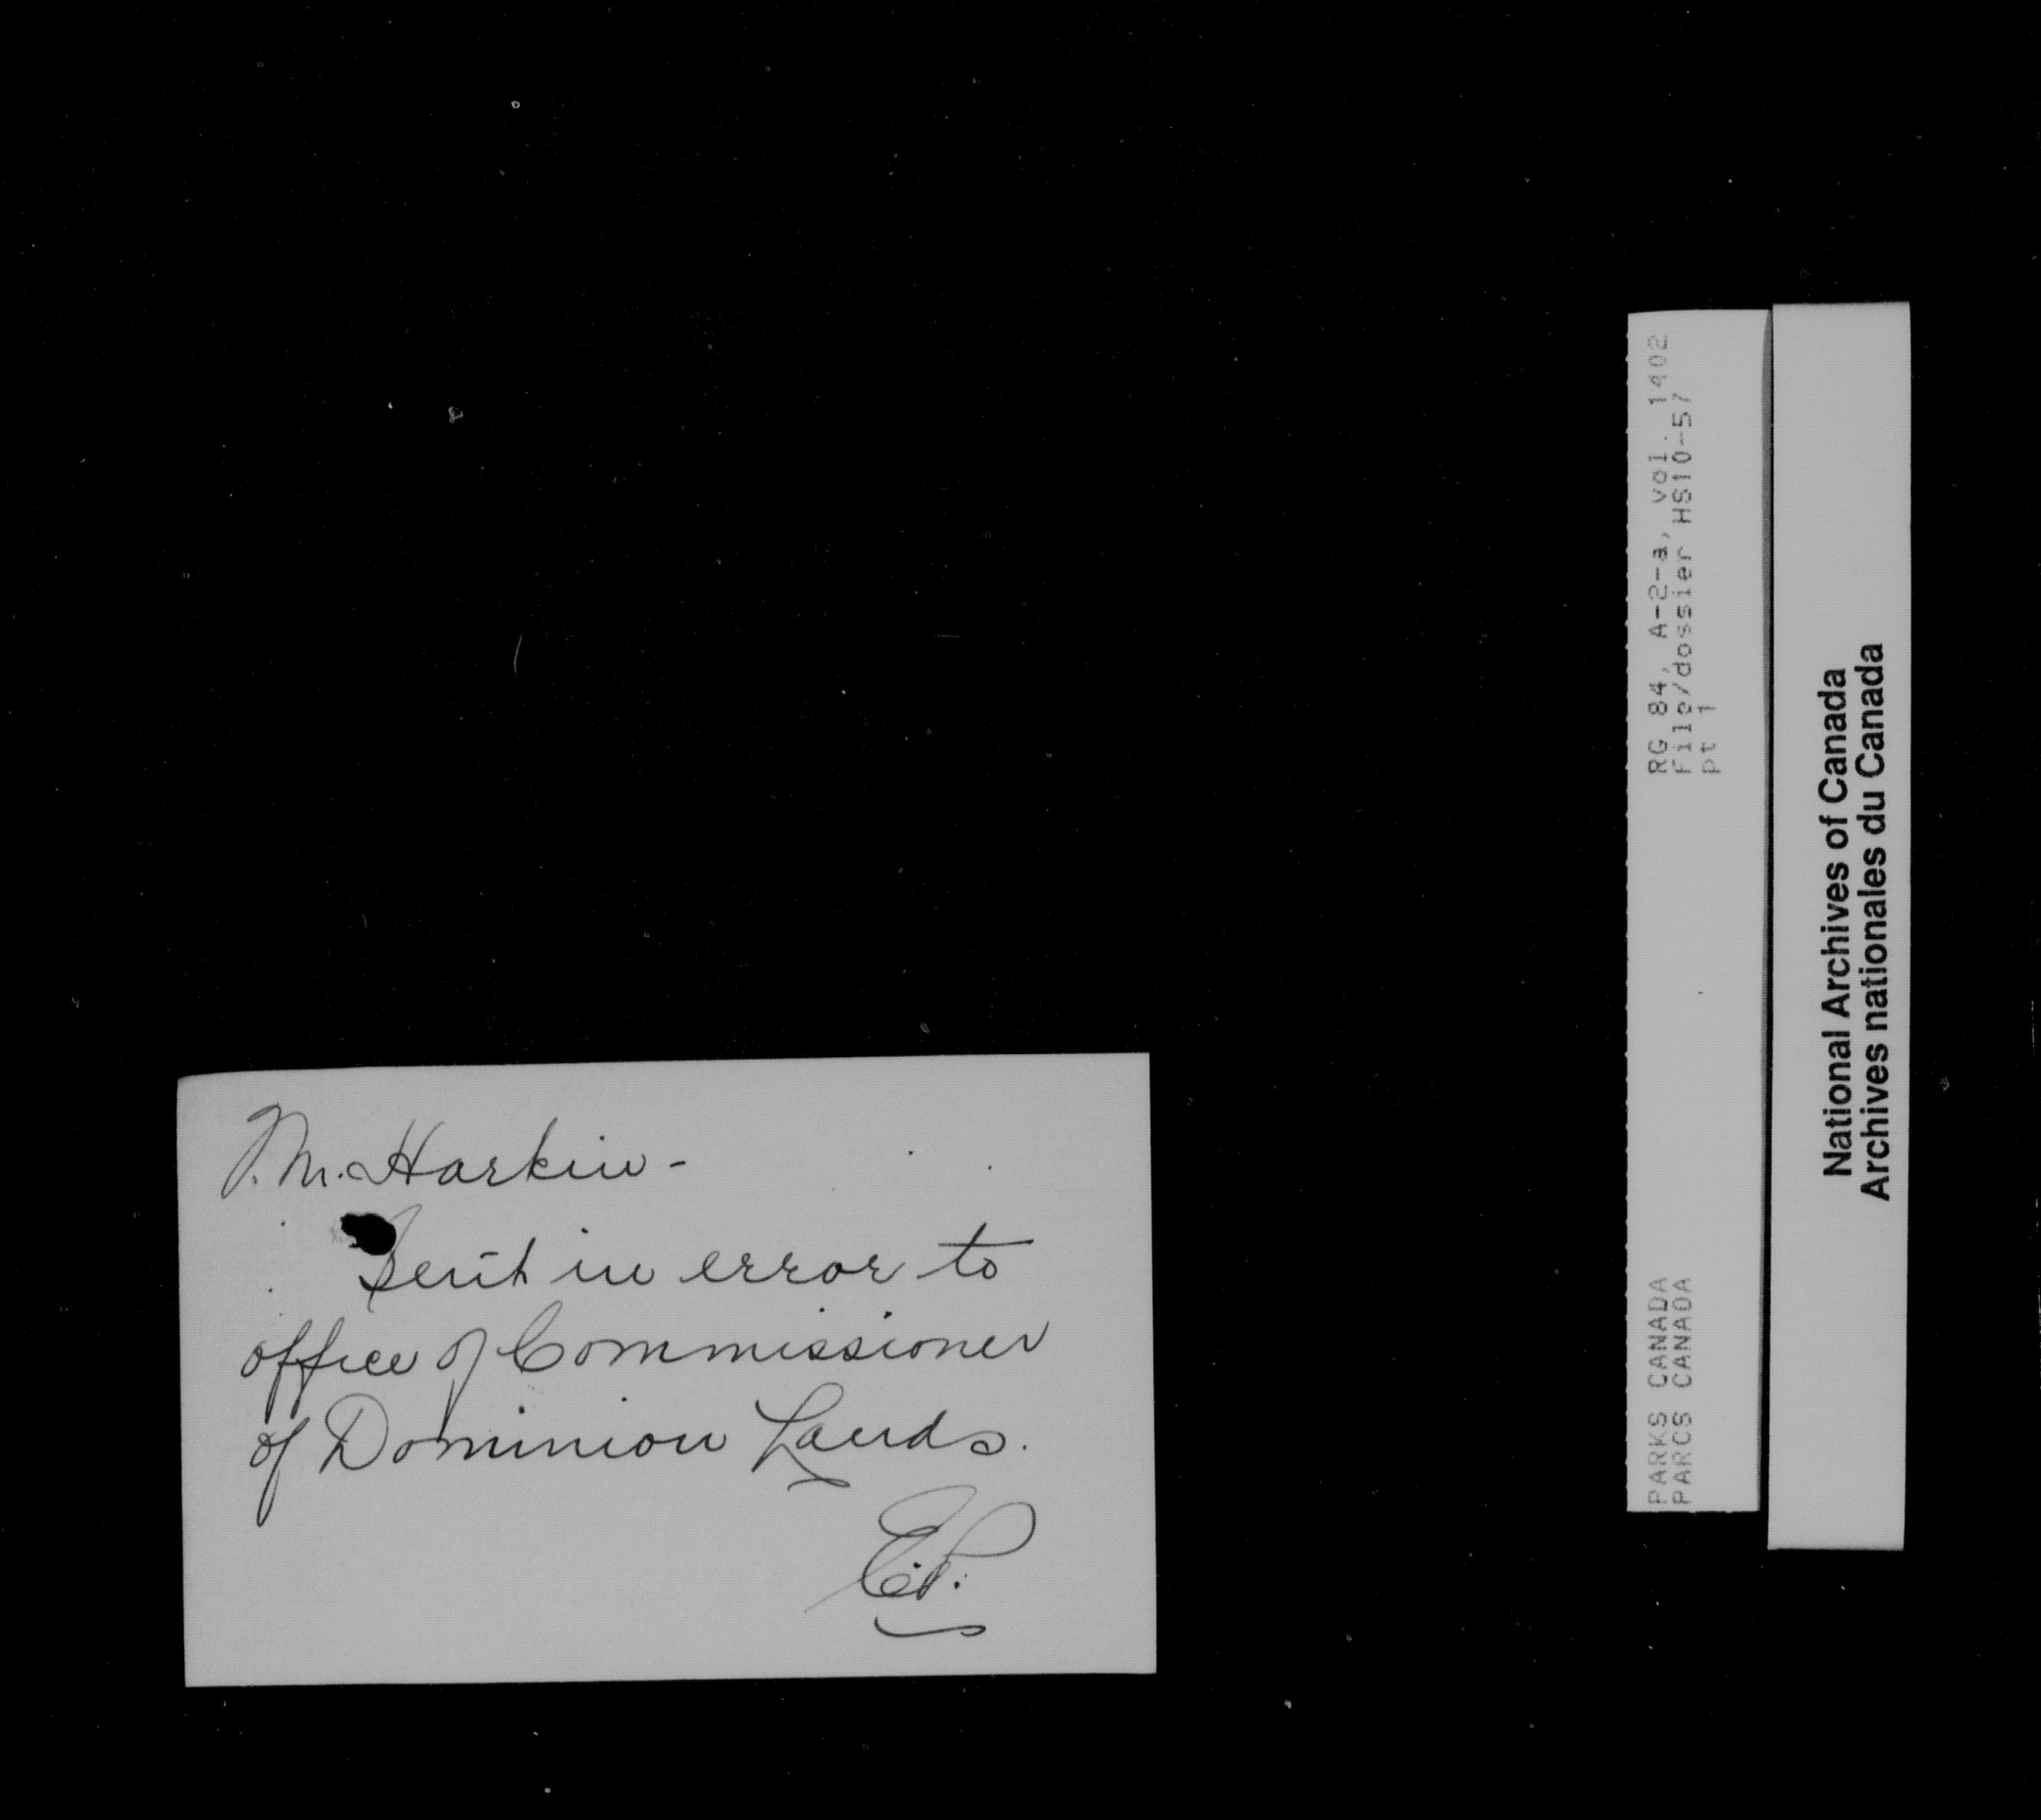 Mr. Harkin -
Sent in error to
office of Commissioner
of Dominion Lands.
E.P.
RG 84, A-2-a, vol. 1402
File/dossier HS10-57
pt 1
PARKS CANADA
PARCS CANADA
National Archives of Canada
Archives nationales du Canada